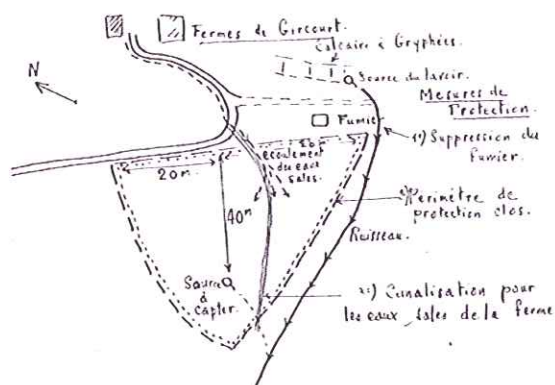 Fermes de Gircourt.
Calcaire à Gryphées.
Source du lavoir.
N
Mesures de
Protection.
Fumier
1°) Suppression du
fumier.
20m
écoulement
des eaux
sales.
20m
40m
Périmètre de
protection clos.
Ruisseau.
Source
à
capter.
2°) Canalisation pour
les eaux sales de la ferme